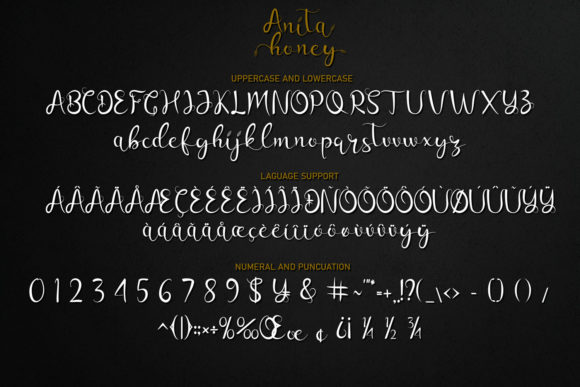 Anita
honey
UPPERCASE AND LOWERCASE
ABCDEFGHIJKLMNOPQRSTUVWXYZ
abcdefghijklmnopqrstuvwxyz
LAGUAGE SUPPORT
ÁÂÀÄÅÆÇÉÊÈËÍÎÌÏ
àáâäãåæçèêëíîïóôøùúûüýÿ
NUMERAL AND PUNCUATION
0 1 2 3 4 5 6 7 8 9 $ ¥ & # ~'"*=+,..!?(_\<> - {} () /
^{|}:;×÷%‰Œœ ¢ ¿¡ ¼ ½ ¾